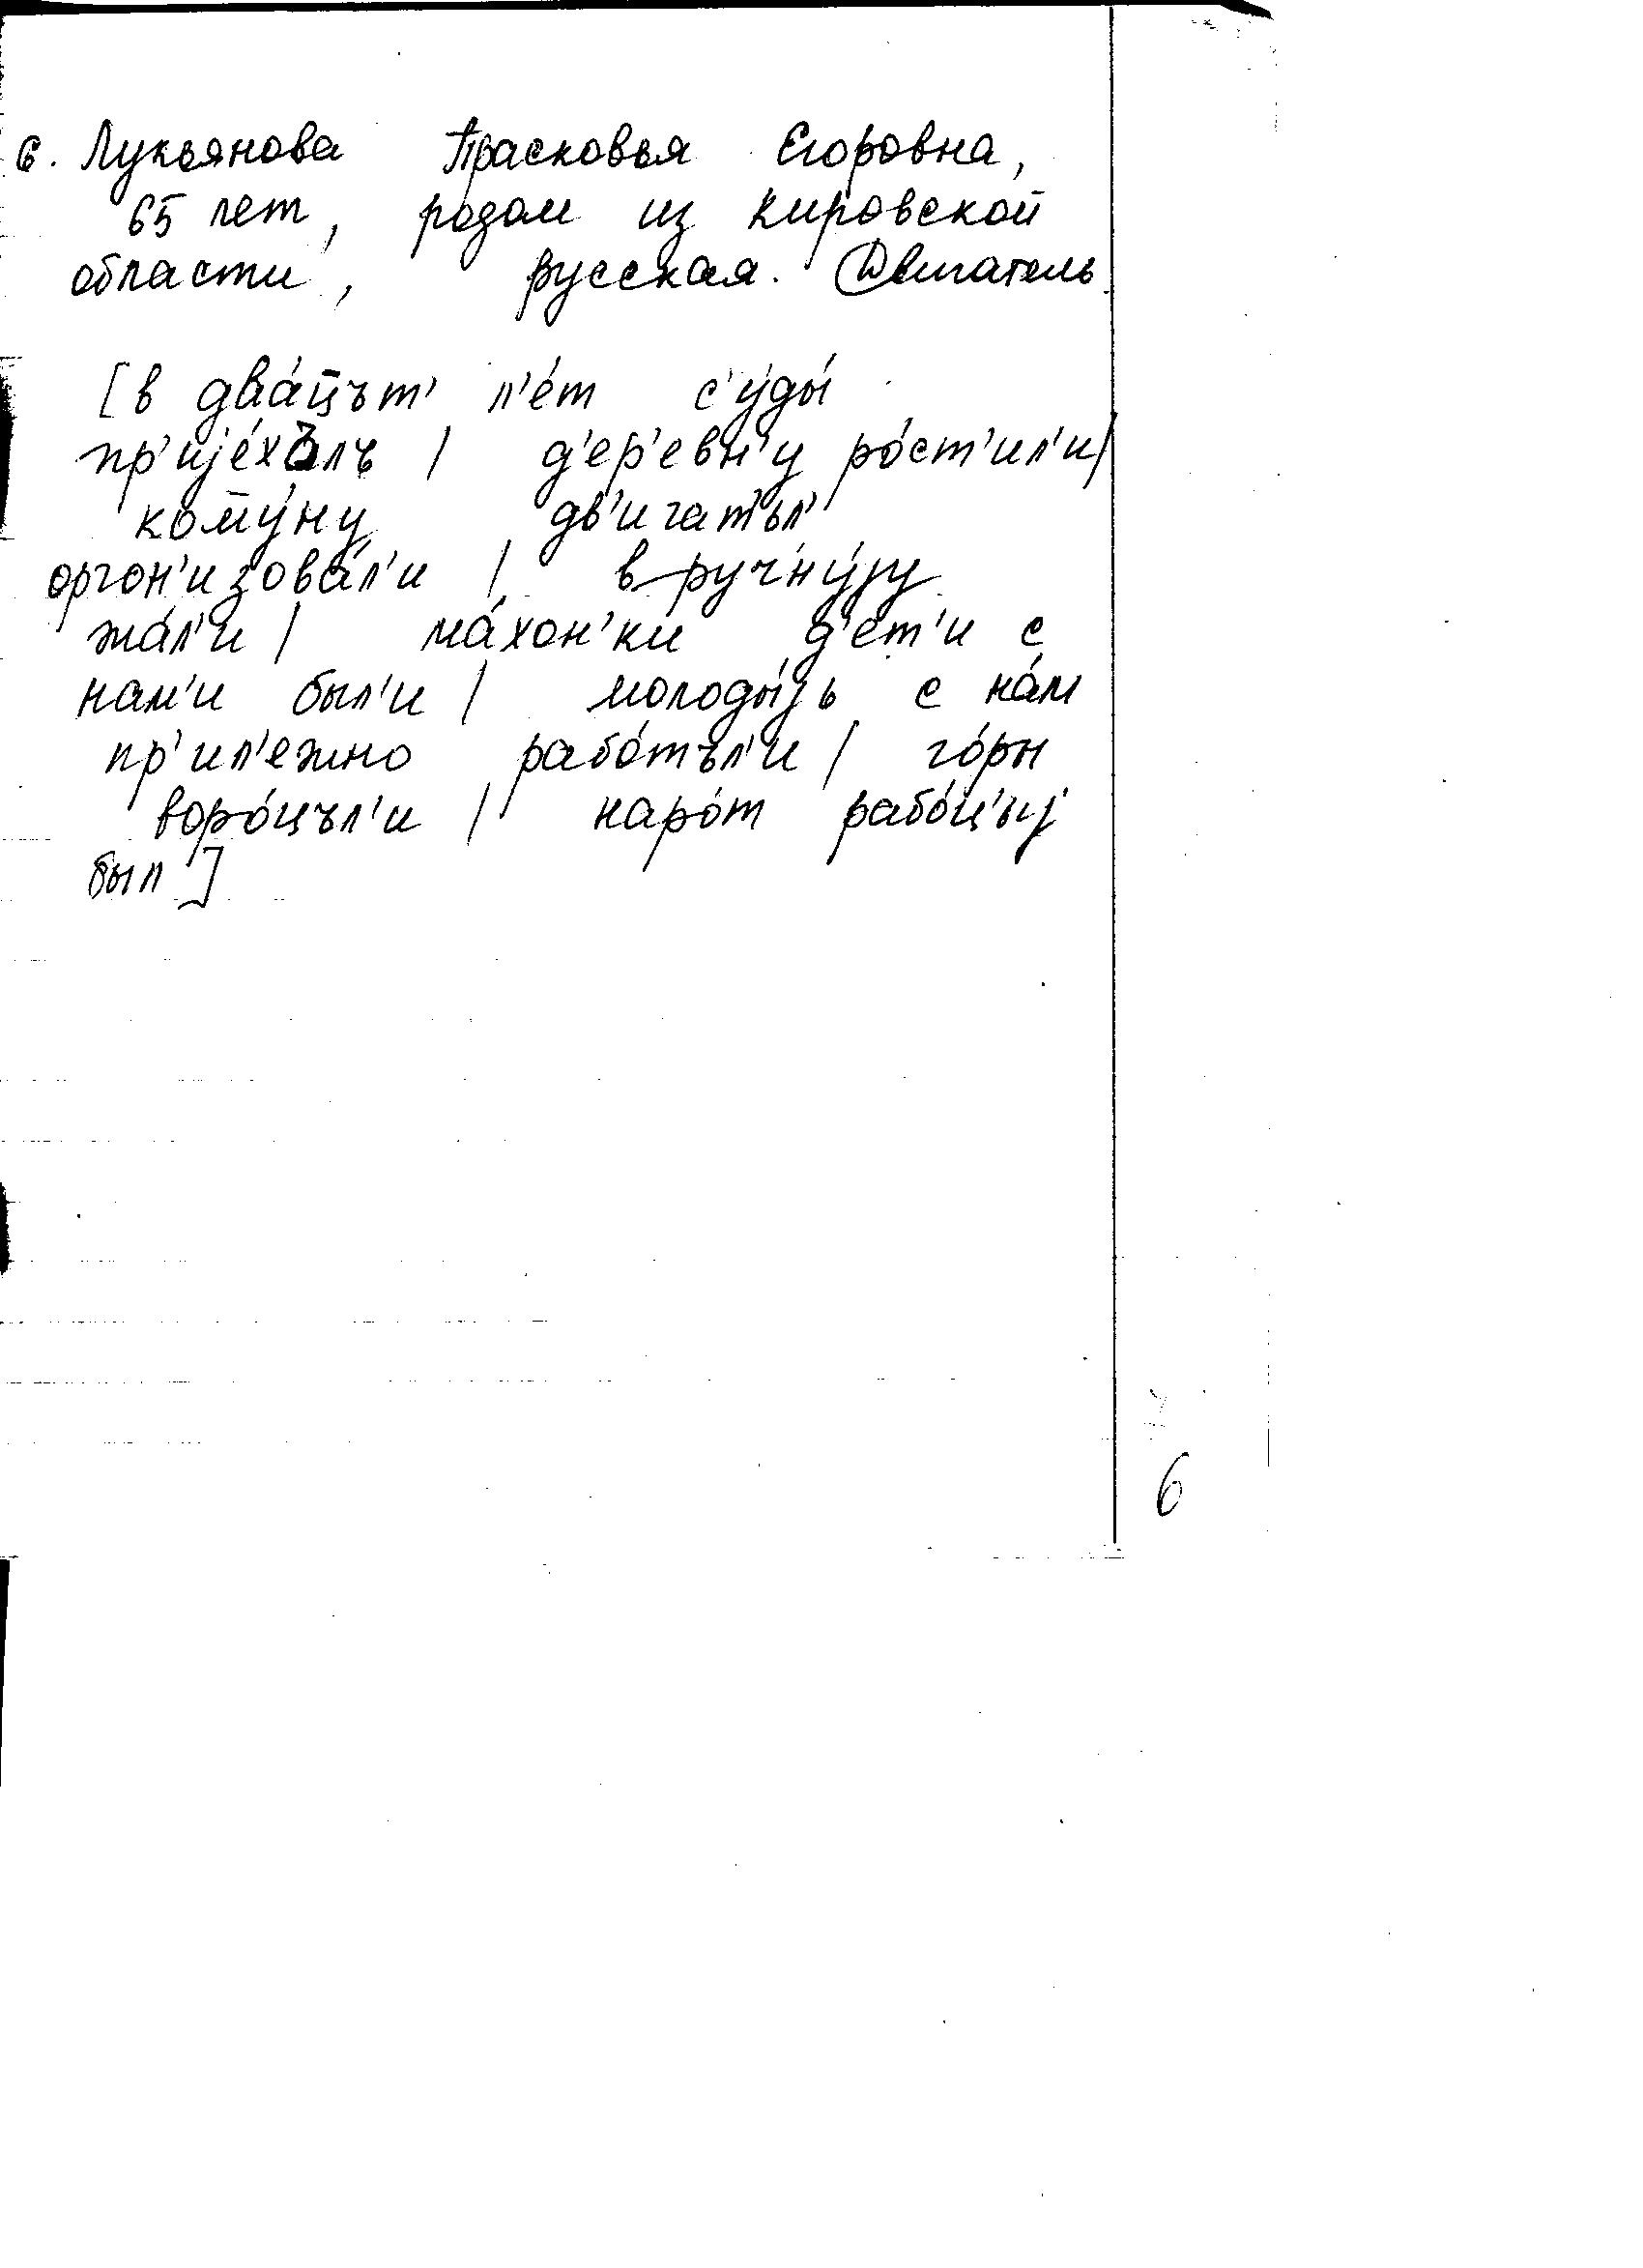 6. Лукьянова Прасковья Егоровна,
65 лет, родом из Кировской
области, русская. Двигатель
[в два́цът' л'е́т с'у́ды́
пр'ијéхълъ / д'ер'евн'у ро́ст'ил'и/
кому́ну дв'игат'ъл'
оргон'изова́л'и / в ручну́ју
жа́л'и / ма́хон'ки д'ет'и с
нам'и был'и / молоды́јь с на́м
пр'ил'ежно рабо́тъл'и / го́ры
воро́цъл'и / наро́т рабо́ц'ыј
был]
6